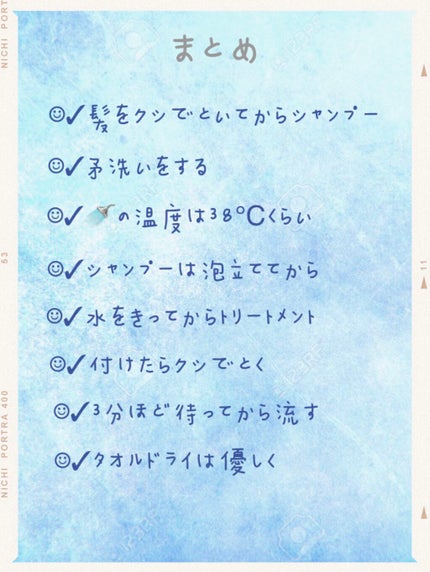 まとめ
☺✓髪をクシでといてからシャンプー
☺✓予洗いをする
☺✓🚿の温度は38℃くらい
☺✓シャンプーは泡立ててから
☺✓水をきってからトリートメント
☺✓付けたらクシでとく
☺✓3分ほど待ってから流す
☺✓タオルドライは優しく
NICHI PORT
53
NICHI PORTRA 400
11